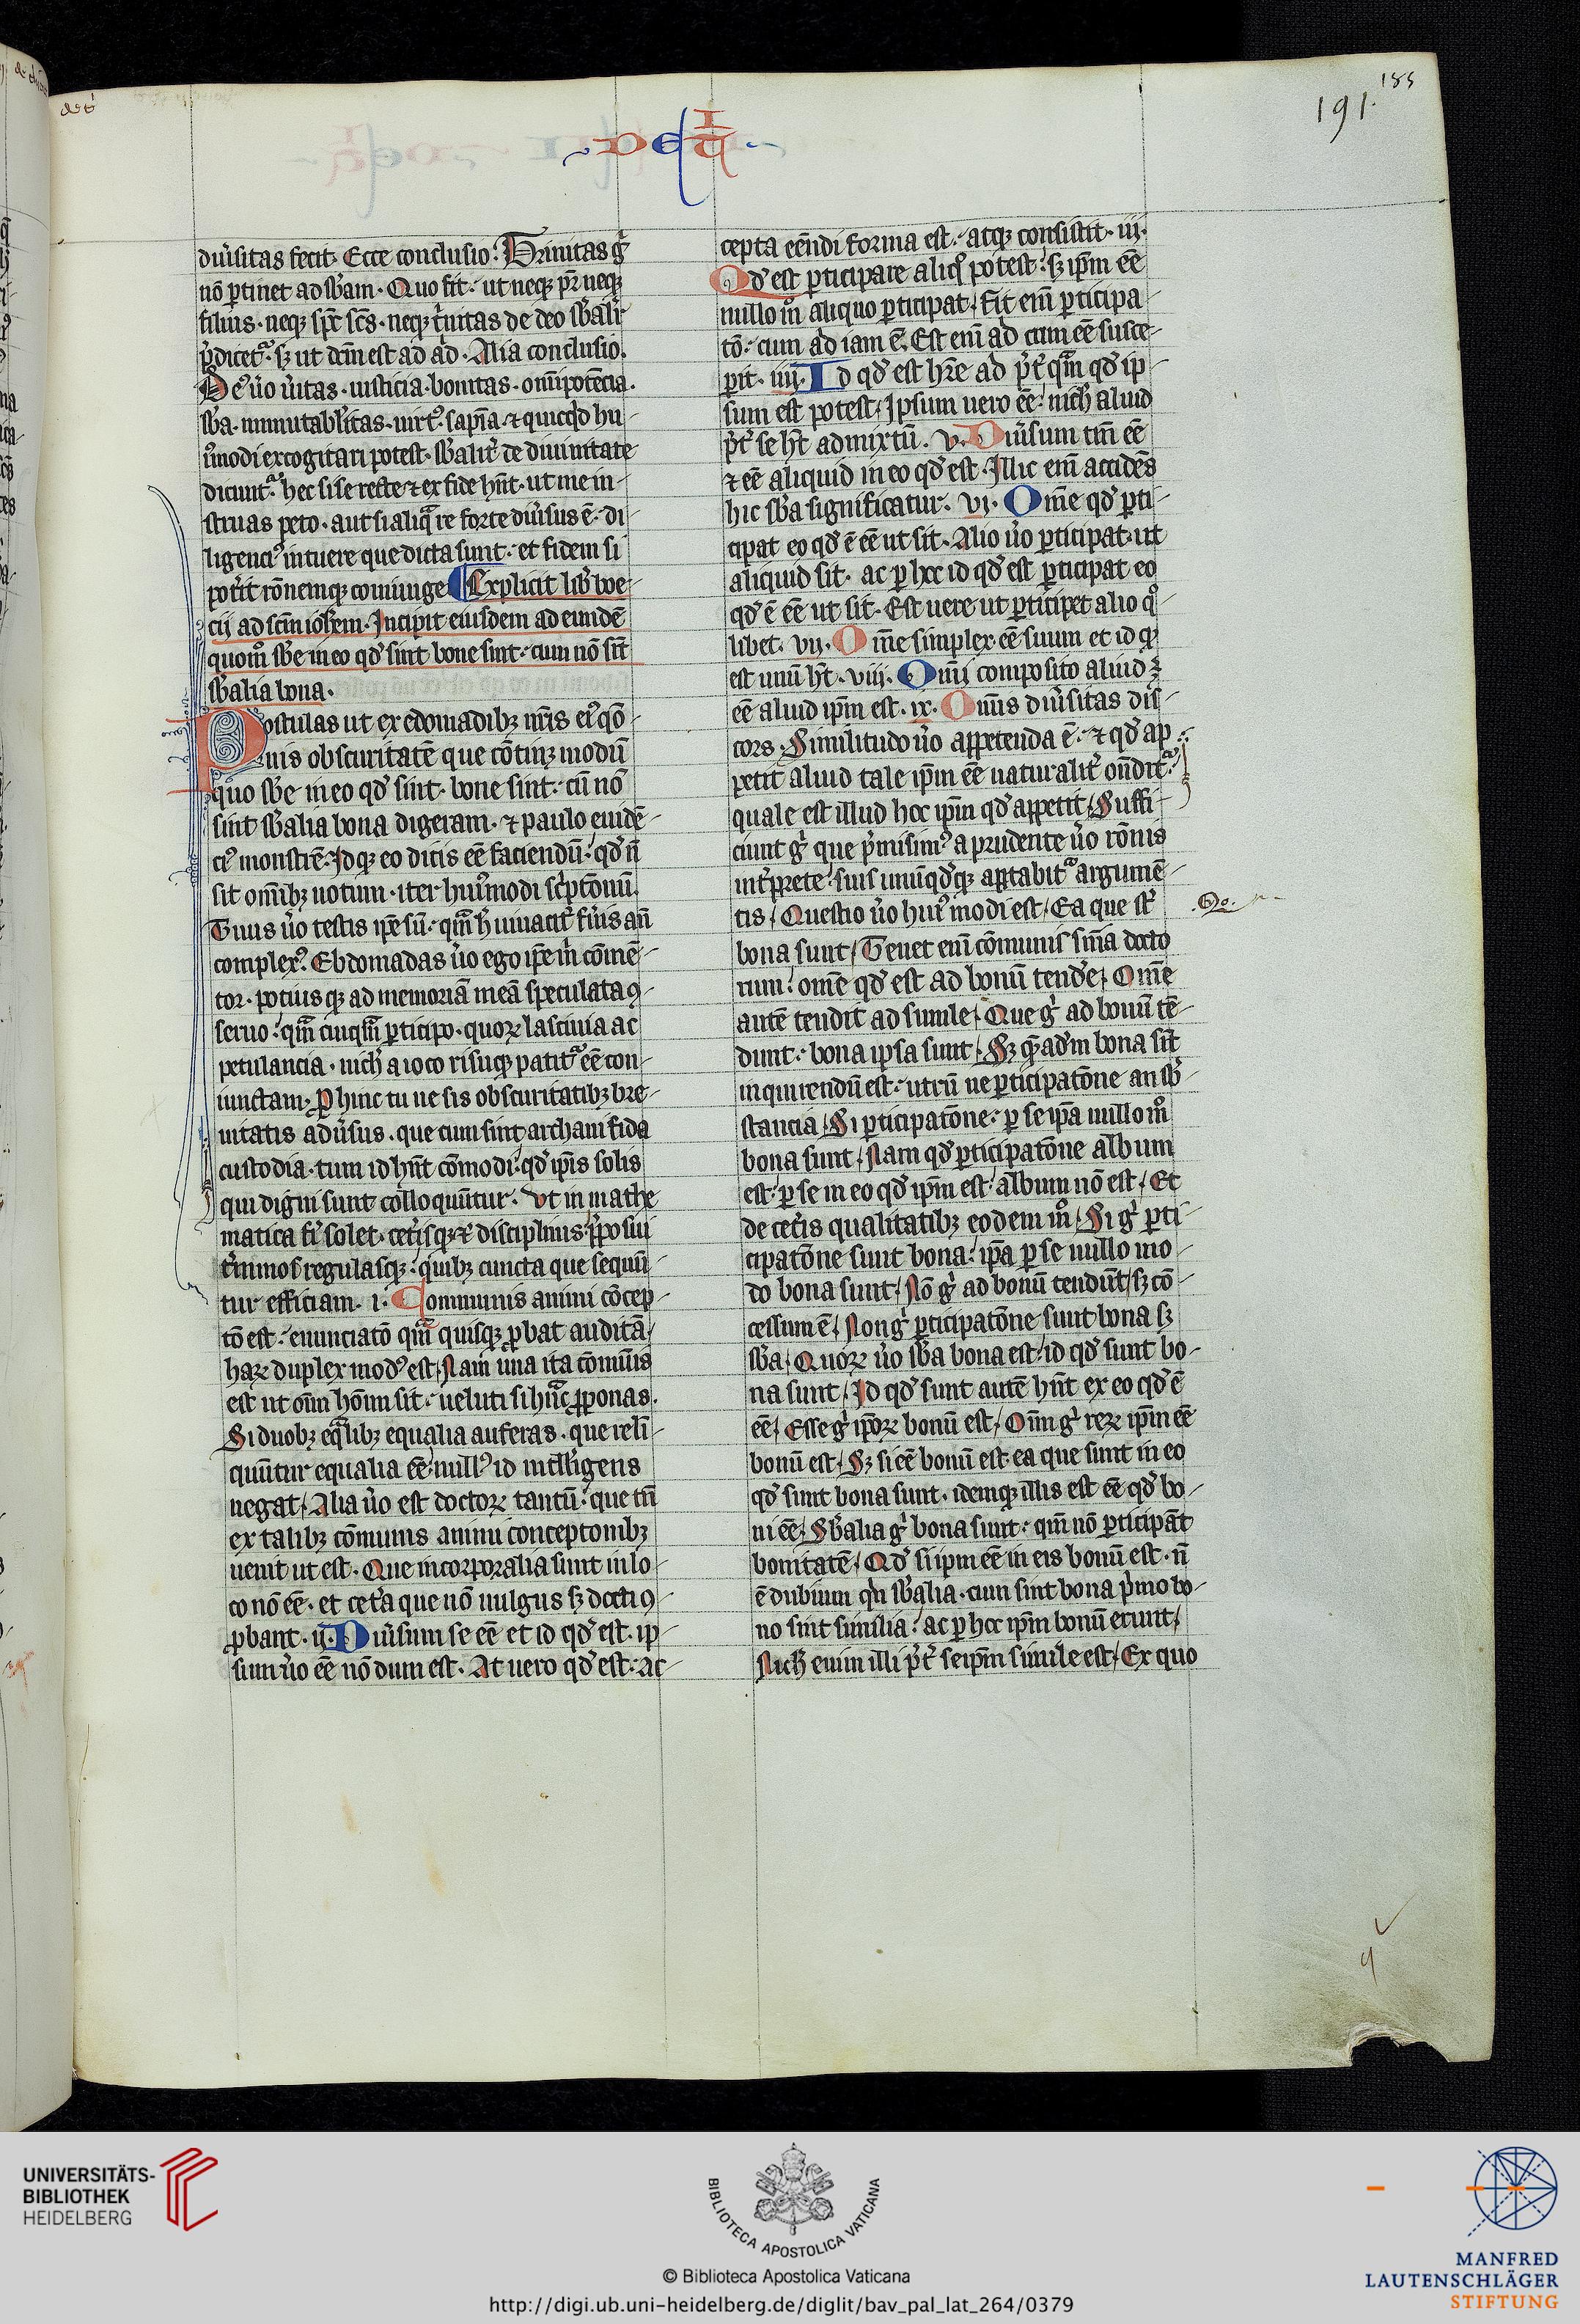 de t
185
191.
DE T I
diũsitas fecit. Ecce conclusio. Trinitas g̾
nō ꝑtinet ad sb̾am. Quo fit. ut neqꝫ pr̄ neqꝫ
filius. neqꝫ sp̄c sc̄s. neqꝫ t̾nitas de deo sb̾alit̾
p̾dicet̾. sꝫ ut dc̄m est ad ad. Alia conclusio.
Deꝰ ũo ũitas. iusticia. bonitas. om̄ipotēcia.
sb̾a. inmutabl̾itas. uirtꝰ. sapīa. ⁊ quicq̾d hu
iꝰmodi excogitari potest. sb̾alit̾ de diuinitate
dicunt̾. hec si se recte ⁊ ex fide hn̄t. ut me in
struas peto. aut si aliq̾ re forte diũsus ē. di
ligenciꝰ intuere que dicta sunt. et fidem si
pot̾it rōnemqꝫ coniunge. Explicit lib̾ boe
cij ad sc̄m ioh̄em. Incipit eiusdem ad eundē
quom̊ sb̾e in eo qd̾ sint bone sint. cum nō sīt
sb̾alia bona.
Postulas ut ex edomadibꝫ nr̄is eiꝰ qō
nis obscuritatē que cōtinꝫ modū
quo sb̾e in eo qd̾ sint. bone sint. cū nō
sint sb̾alia bona digeram. ⁊ paulo euidē
ciꝰ monstrē. Idqꝫ eo dicis eē faciendū. qd̾ n̄
sit om̄ibꝫ notum. iter huiꝰmodi sc̾ptōnū.
Tuus ũo testis ip̄e sū. qm̄ h uiuacit̾ fũis an̄
complexꝰ. Ebdomadas ũo ego ip̄e m̾ cōmē
tor. potiusqꝫ ad memoriā meā speculata ꝯ
seruo. qm̄ cuiqm̄ ꝑticipo. quoꝝ lasciuia ac
petulancia. nich̾ a ioco risuqꝫ patit̾ eē con
iunctam. Ꝓhinc tu ne sis obscuritatibꝫ bre
uitatis adũsus. que cum sint archani fida
custodia. tum id hn̄t cōmodi. qd̾ ip̄is solis
qui digni sunt colloquūtur. Vt in mathe
matica fi̾ solet. cet̾isqꝫ ⁊ disciplinis. p̾posui
t̾minos regulasqꝫ. quibꝫ cuncta que sequū
tur efficiam. i. Communis animi cōcep
tō est. enunciatō qm̄ quisqꝫ ꝓbat auditā.
haꝝ duplex modꝰ est. Nam una ita cōmūis
est ut om̄i hōim sit. ueluti si hn̄c ꝓponas.
Si duobꝫ eq̾libꝫ equalia auferas. que reli
quūtur equalia eē. nullꝰ id intelligens
negat. Alia ũo est doctoꝝ tantū. que tn̄
ex talibꝫ cōmunis animi conceptonibꝫ
uenit ut est. Que incorporalia sunt in lo
co nō eē. et cet̾a que nō uulgus sꝫ docti ꝯ
ꝓbant. ij. Diũsum se eē et id qd̾ est. ip
sum ũo eē nōdum est. At uero qd̾ est. ac
cepta eēndi forma est. atqꝫ consistit. iij.
Qd̾ est ꝑticipare aliq̊ potest. sꝫ ip̄m eē
nullo m̊ aliquo ꝑticipat. Fit enī ꝑticipa
tō. cum ad iam ē. Est enī ad cum eē susce
perit. iiij. Id qd̾ est hr̄e ad p̾t̾ qm̄ qd̾ ip
sum est potest. Ipsum uero eē. nich̾ aliud
p̾t̾ se ht̄ admixtū. v. Diũsum tm̄ eē
⁊ eē aliquid in eo qd̾ est. Illic enī accidēs
hic sb̾a significatur. vj. Om̄e qd̾ ꝑti
cipat eo qd̾ ē eē ut sit. Alio ũo ꝑticipat. ut
aliquid sit. ac ꝑ hoc id qd̾ est ꝑticipat eo
qd̾ ē eē ut sit. Est uere ut ꝑticipet alio q̊
libet. vij. Om̄e simplex eē suum et id qd̾
est unū ht̄. viij. Om̄i composito aliud ꝫ
eē aliud ip̄m est. ix. Om̄is diũsitas dis
cors. Similitudo ũo appetenda ē. ⁊ qd̾ ap
petit aliud tale ip̄m eē naturalit̾ on̄dit̾.
quale est illud hoc ip̄m qd̾ appetit. Suffi
ciunt g̾ que p̾misimꝰ a prudente ũo rōnis
int̾prete. suis unūqd̾qꝫ aptabit̾ argumē
tis. Questio ũo huiꝰmodi est. Ea que st̾
bona sunt. Tenet enī cōmunis sn̄ia docto
rum. omē qd̾ est ad bonū tend̾e. Om̄e
autē tendit ad simile. Que g̾ ad bonū tē
dunt. bona ipsa sunt. Sꝫ qd̾admodum bona sīt
inquirendū est. utrū ne ꝑticipatōne an sb̾
stancia. Si ꝑticipatōne. ꝑ se ip̄a nullo m̊
bona sunt. Nam qd̾ ꝑticipatōne album
est. ꝑ se in eo qd̾ ip̄m est. album nō est. Et
de cet̾is qualitatibꝫ eodem m̊. Si g̾ ꝑti
cipatōne sunt bona. ip̄a ꝑ se nullo mo
do bona sunt. Nō g̾ ad bonū tendūt. sꝫ cō
cessum ē. Non g̾ ꝑticipatōne sunt bona sꝫ
sb̾a. Quoꝝ ũo sb̾a bona est. id qd̾ sunt bo
na sunt. Id qd̾ sunt autē hn̄t ex eo qd̾ ē
eē. Esse g̾ ip̄oꝝ bonū est. Om̄i g̾ reꝝ ip̄m eē
bonū est. Sꝫ si eē bonū est. ea que sunt in eo
qd̾ sunt bona sunt. idemqꝫ illis est eē qd̾ bo
ni eē. Sb̾alia g̾ bona sunt. qm̄ nō ꝑticipāt
bonitatē. Qd̾ si ip̄m eē in eis bonū est. n̄
ē dubium qn̾ sb̾alia. cum sint bona p̾mo bo
no sint similia. ac ꝑ hoc ip̄m bonū erunt.
Nich̾ enim illi p̾t̾ seip̄m simile est. Ex quo
UNIVERSITÄTS-
BIBLIOTHEK
HEIDELBERG
BIBLIOTECA APOSTOLICA VATICANA
© Biblioteca Apostolica Vaticana
http://digi.ub.uni-heidelberg.de/diglit/bav_pal_lat_264/0379
MANFRED
LAUTENSCHLÄGER
STIFTUNG